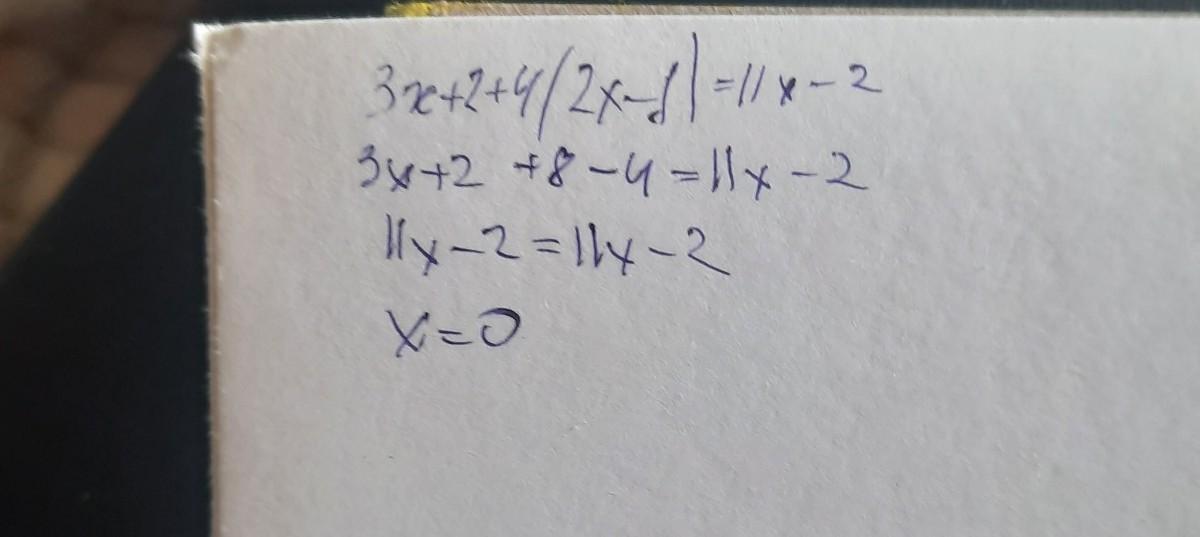 3x+2+4(2x-1)=11x-2
3x+2 +8-4=11x-2
11x-2=11x-2
x=0